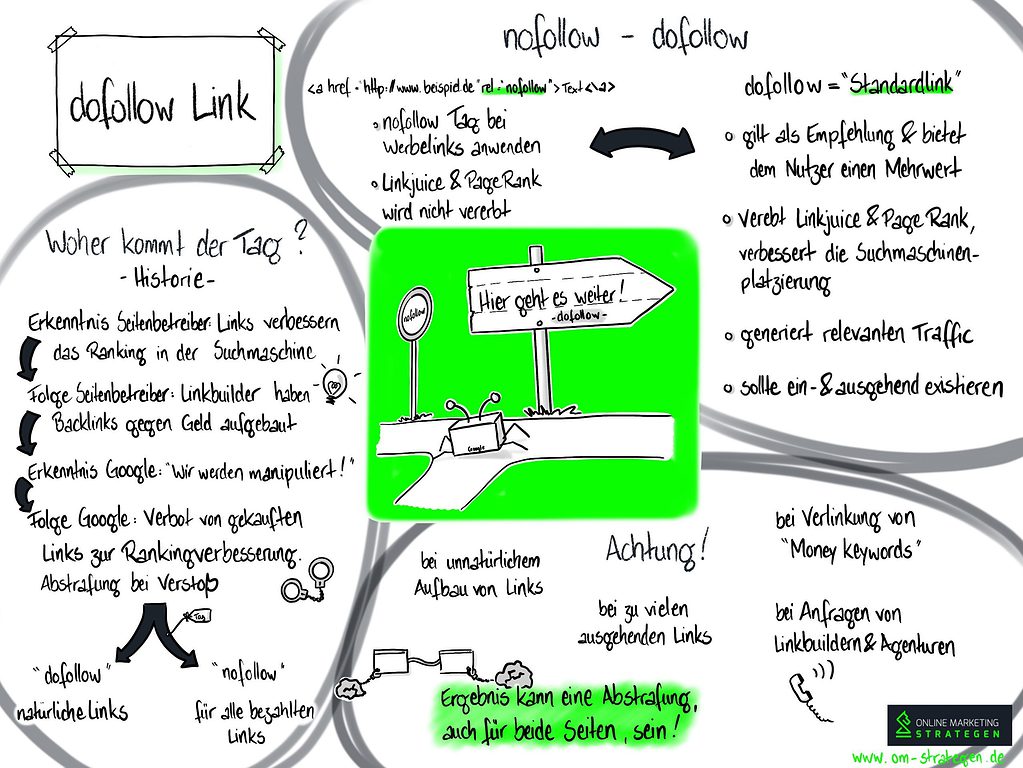 dofollow Link
nofollow - dofollow
<a href="http://www.beispiel.de" rel="nofollow">Text<\a>
nofollow Tag bei
Werbelinks anwenden
Linkjuice & PageRank
wird nicht vererbt
dofollow = "Standardlink"
gilt als Empfehlung & bietet
dem Nutzer einen Mehrwert
Verebt Linkjuice & PageRank,
verbessert die Suchmaschinen-
platzierung
generiert relevanten Traffic
sollte ein- & ausgehend existieren
Woher kommt der Tag?
- Historie -
Erkenntnis Seitenbetreiber: Links verbessern
das Ranking in der Suchmaschine
Folge Seitenbetreiber: Linkbuilder haben
Backlinks gegen Geld aufgebaut
Erkenntnis Google: "Wir werden manipuliert!"
Folge Google: Verbot von gekauften
Links zur Rankingverbesserung.
Abstrafung bei Verstoß
Tag
"dofollow"
natürliche Links
"nofollow"
für alle bezahlten
Links
nofollow
Hier geht es weiter!
- dofollow -
Google
Achtung!
bei unnatürlichem
Aufbau von Links
bei zu vielen
ausgehenden Links
bei Verlinkung von
"Money keywords"
bei Anfragen von
Linkbuildern & Agenturen
Ergebnis kann eine Abstrafung,
auch für beide Seiten, sein!
ONLINE MARKETING
STRATEGEN
www.om-strategen.de